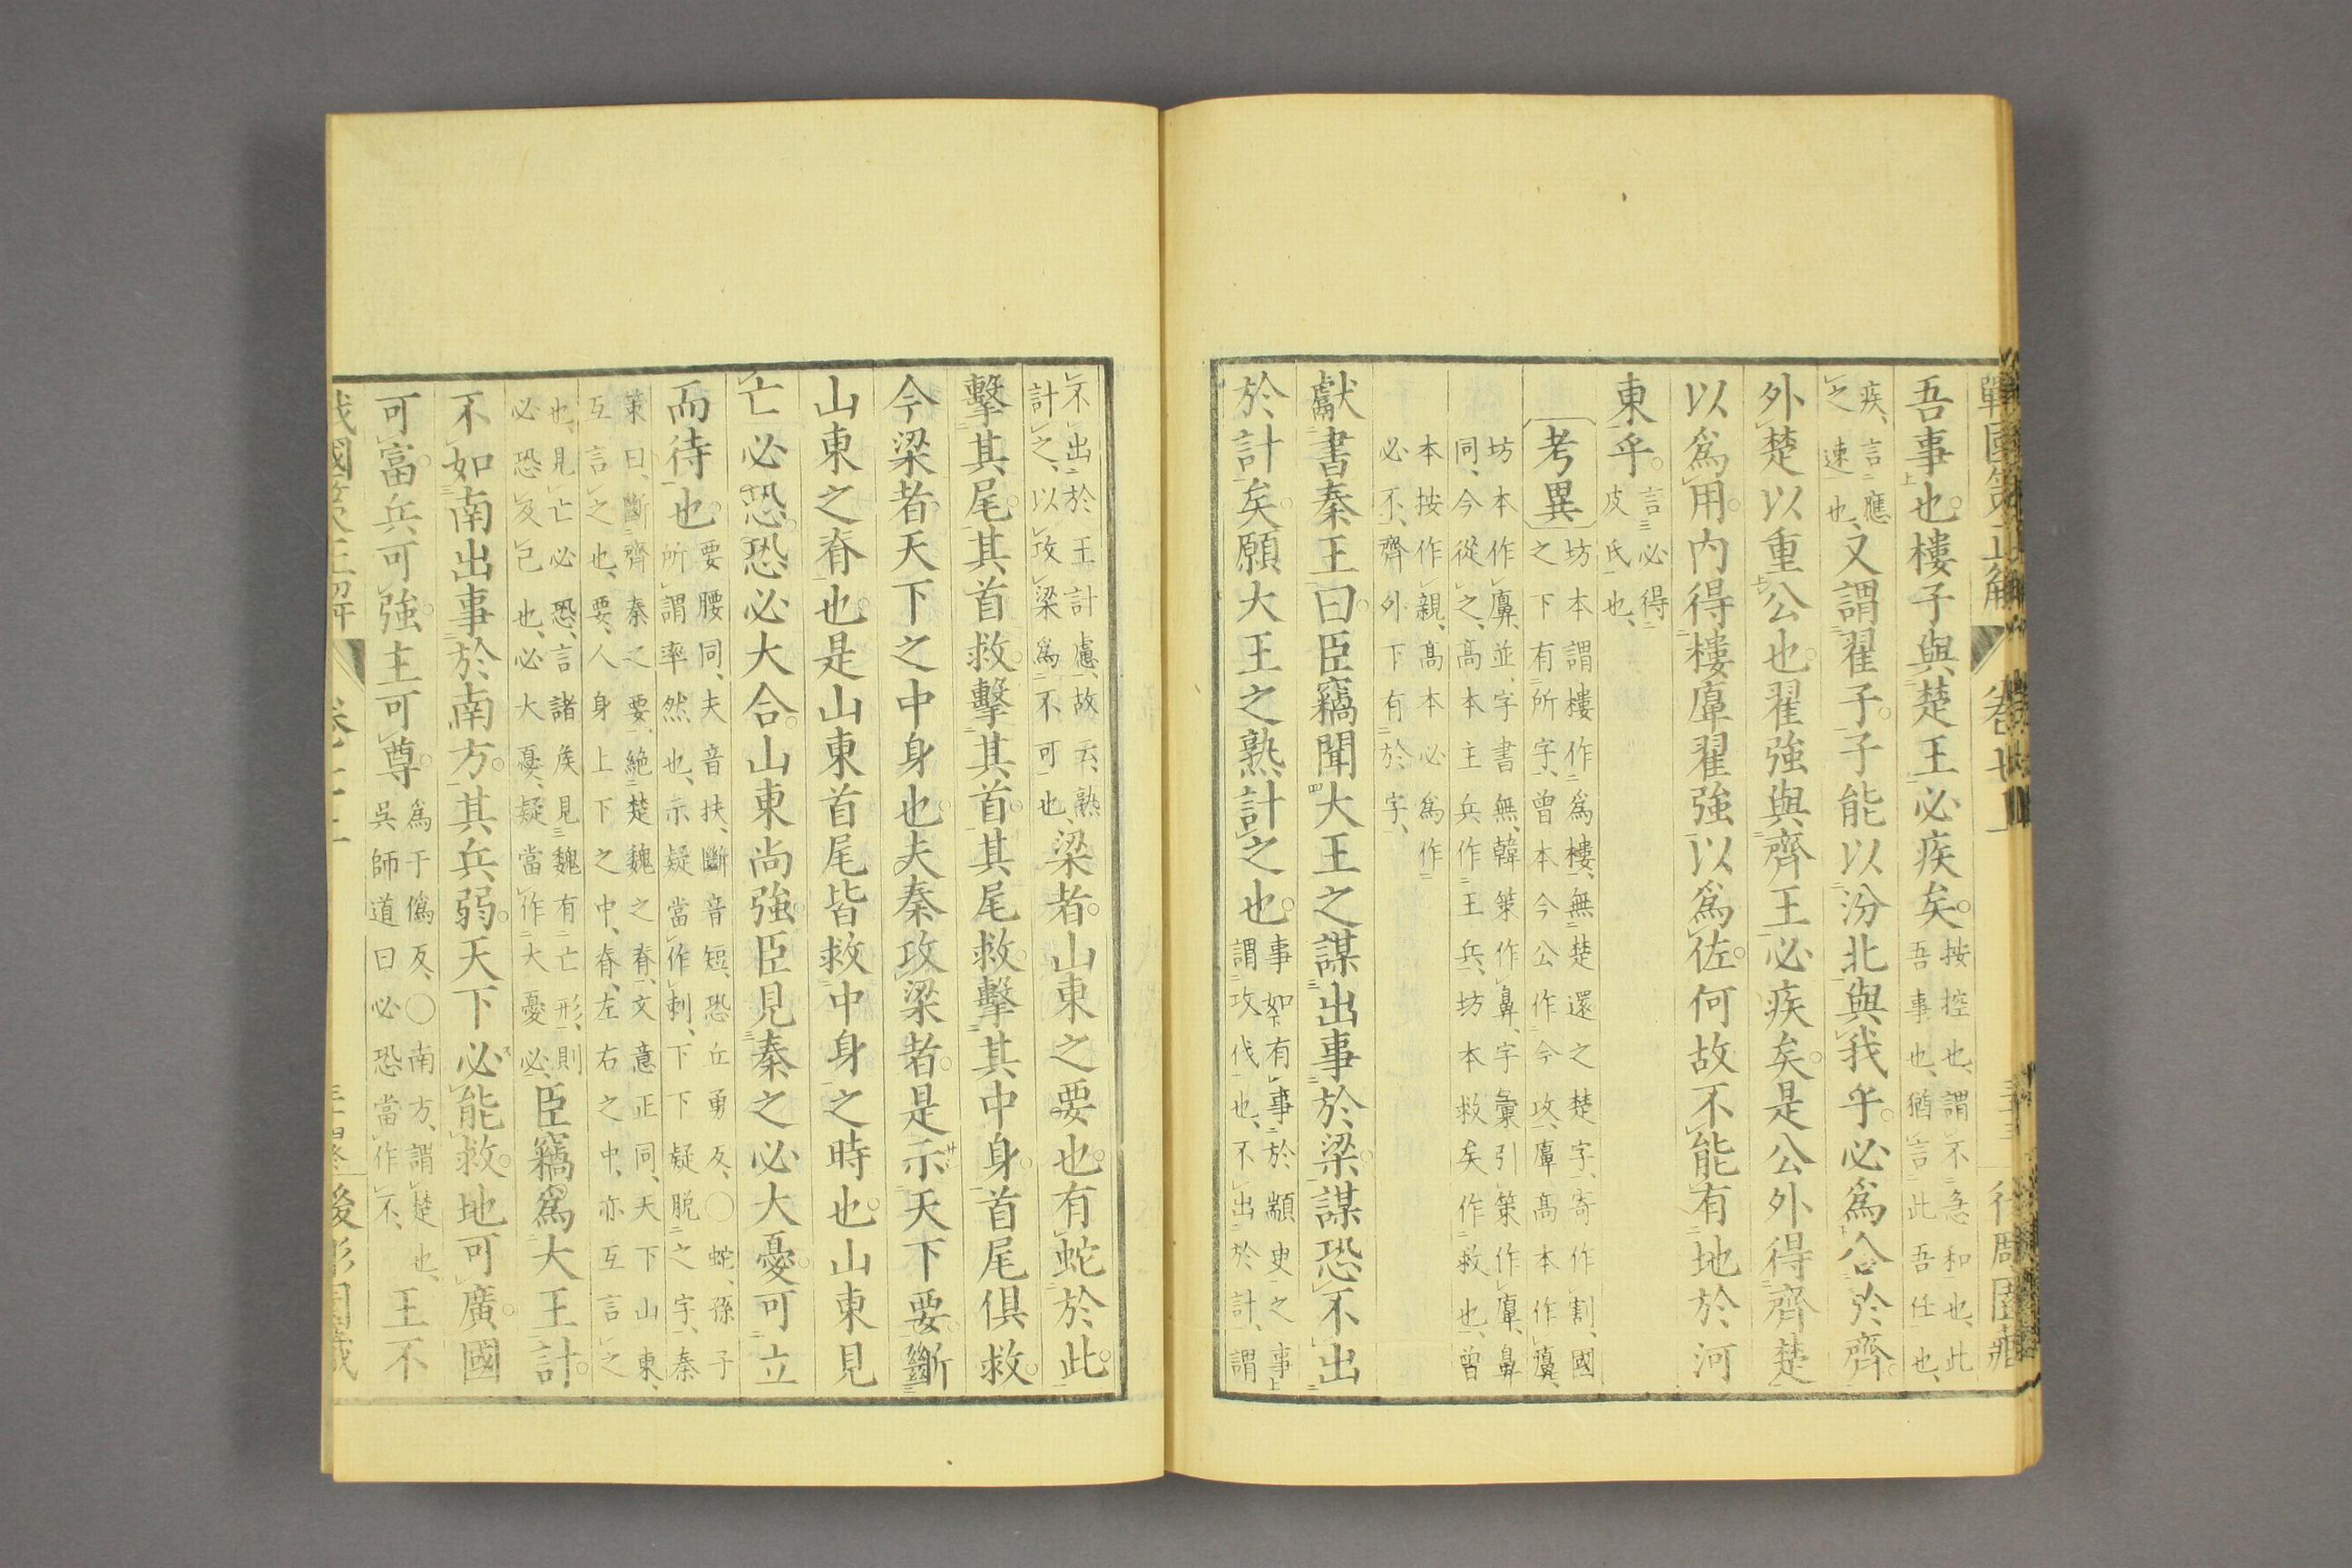 戰國策正解　卷七　三十三
吾事也。樓子與楚王必疾矣。按控也、謂不急和也、此吾事也、猶言此吾任也、
疾、言應之速也、又謂翟子。子能以汾北與我乎。必爲合於齊
外楚以重公也。翟強與齊王必疾矣。是公外得齊楚
以爲用。内得樓㢑翟強以爲佐。何故不能有地於河
東乎。言必得皮氏也、
考異　坊本謂樓作爲樓、無楚還之楚字、寄作割、國之下有所字、曾本今公作今攻、㢑高本作廙、
坊本作廙、並字書無、韓策作鼻、字彙引策作㢑、鼻同、今從之、高本主兵作王兵、坊本救矣作救也、曾
本按作親、高本必爲作必不、齊外下有於字、
獻書秦王曰。臣竊聞大王之謀出事於梁。謀恐不出
於計矣。願大王之熟計之也。事如有事於顓臾之事謂攻伐也、不出於計、謂
不出於王計慮、故云、熟計之、以攻梁爲不可也、梁者。山東之要也。有蛇於此。
擊其尾。其首救。擊其首。其尾救。擊其中身。首尾俱救。
今梁者。天下之中身也。夫秦攻梁者。是示天下要斷
山東之脊也。是山東首尾皆救中身之時也。山東見
亡必恐。恐必大合。山東尚強。臣見秦之必大憂可立
而待也。要腰同、夫音扶、斷音短、恐丘勇反、〇蛇、孫子所謂率然也、示疑當作刺、下下疑脫之字、秦
策曰、斷齊秦之要、絶楚魏之脊、文意正同、天下山東、互言之也、要、人身上下之中、脊、左右之中、亦互言之
也、見亡必恐、言諸侯見魏有亡形、則必恐及已也、必大憂、疑當作大憂必、臣竊爲大王計。
不如南出事於南方。其兵弱。天下必能救。地可廣。國
可富。兵可強。主可尊。爲于僞反、〇南方、謂楚也、吳師道曰必恐當作不、王不